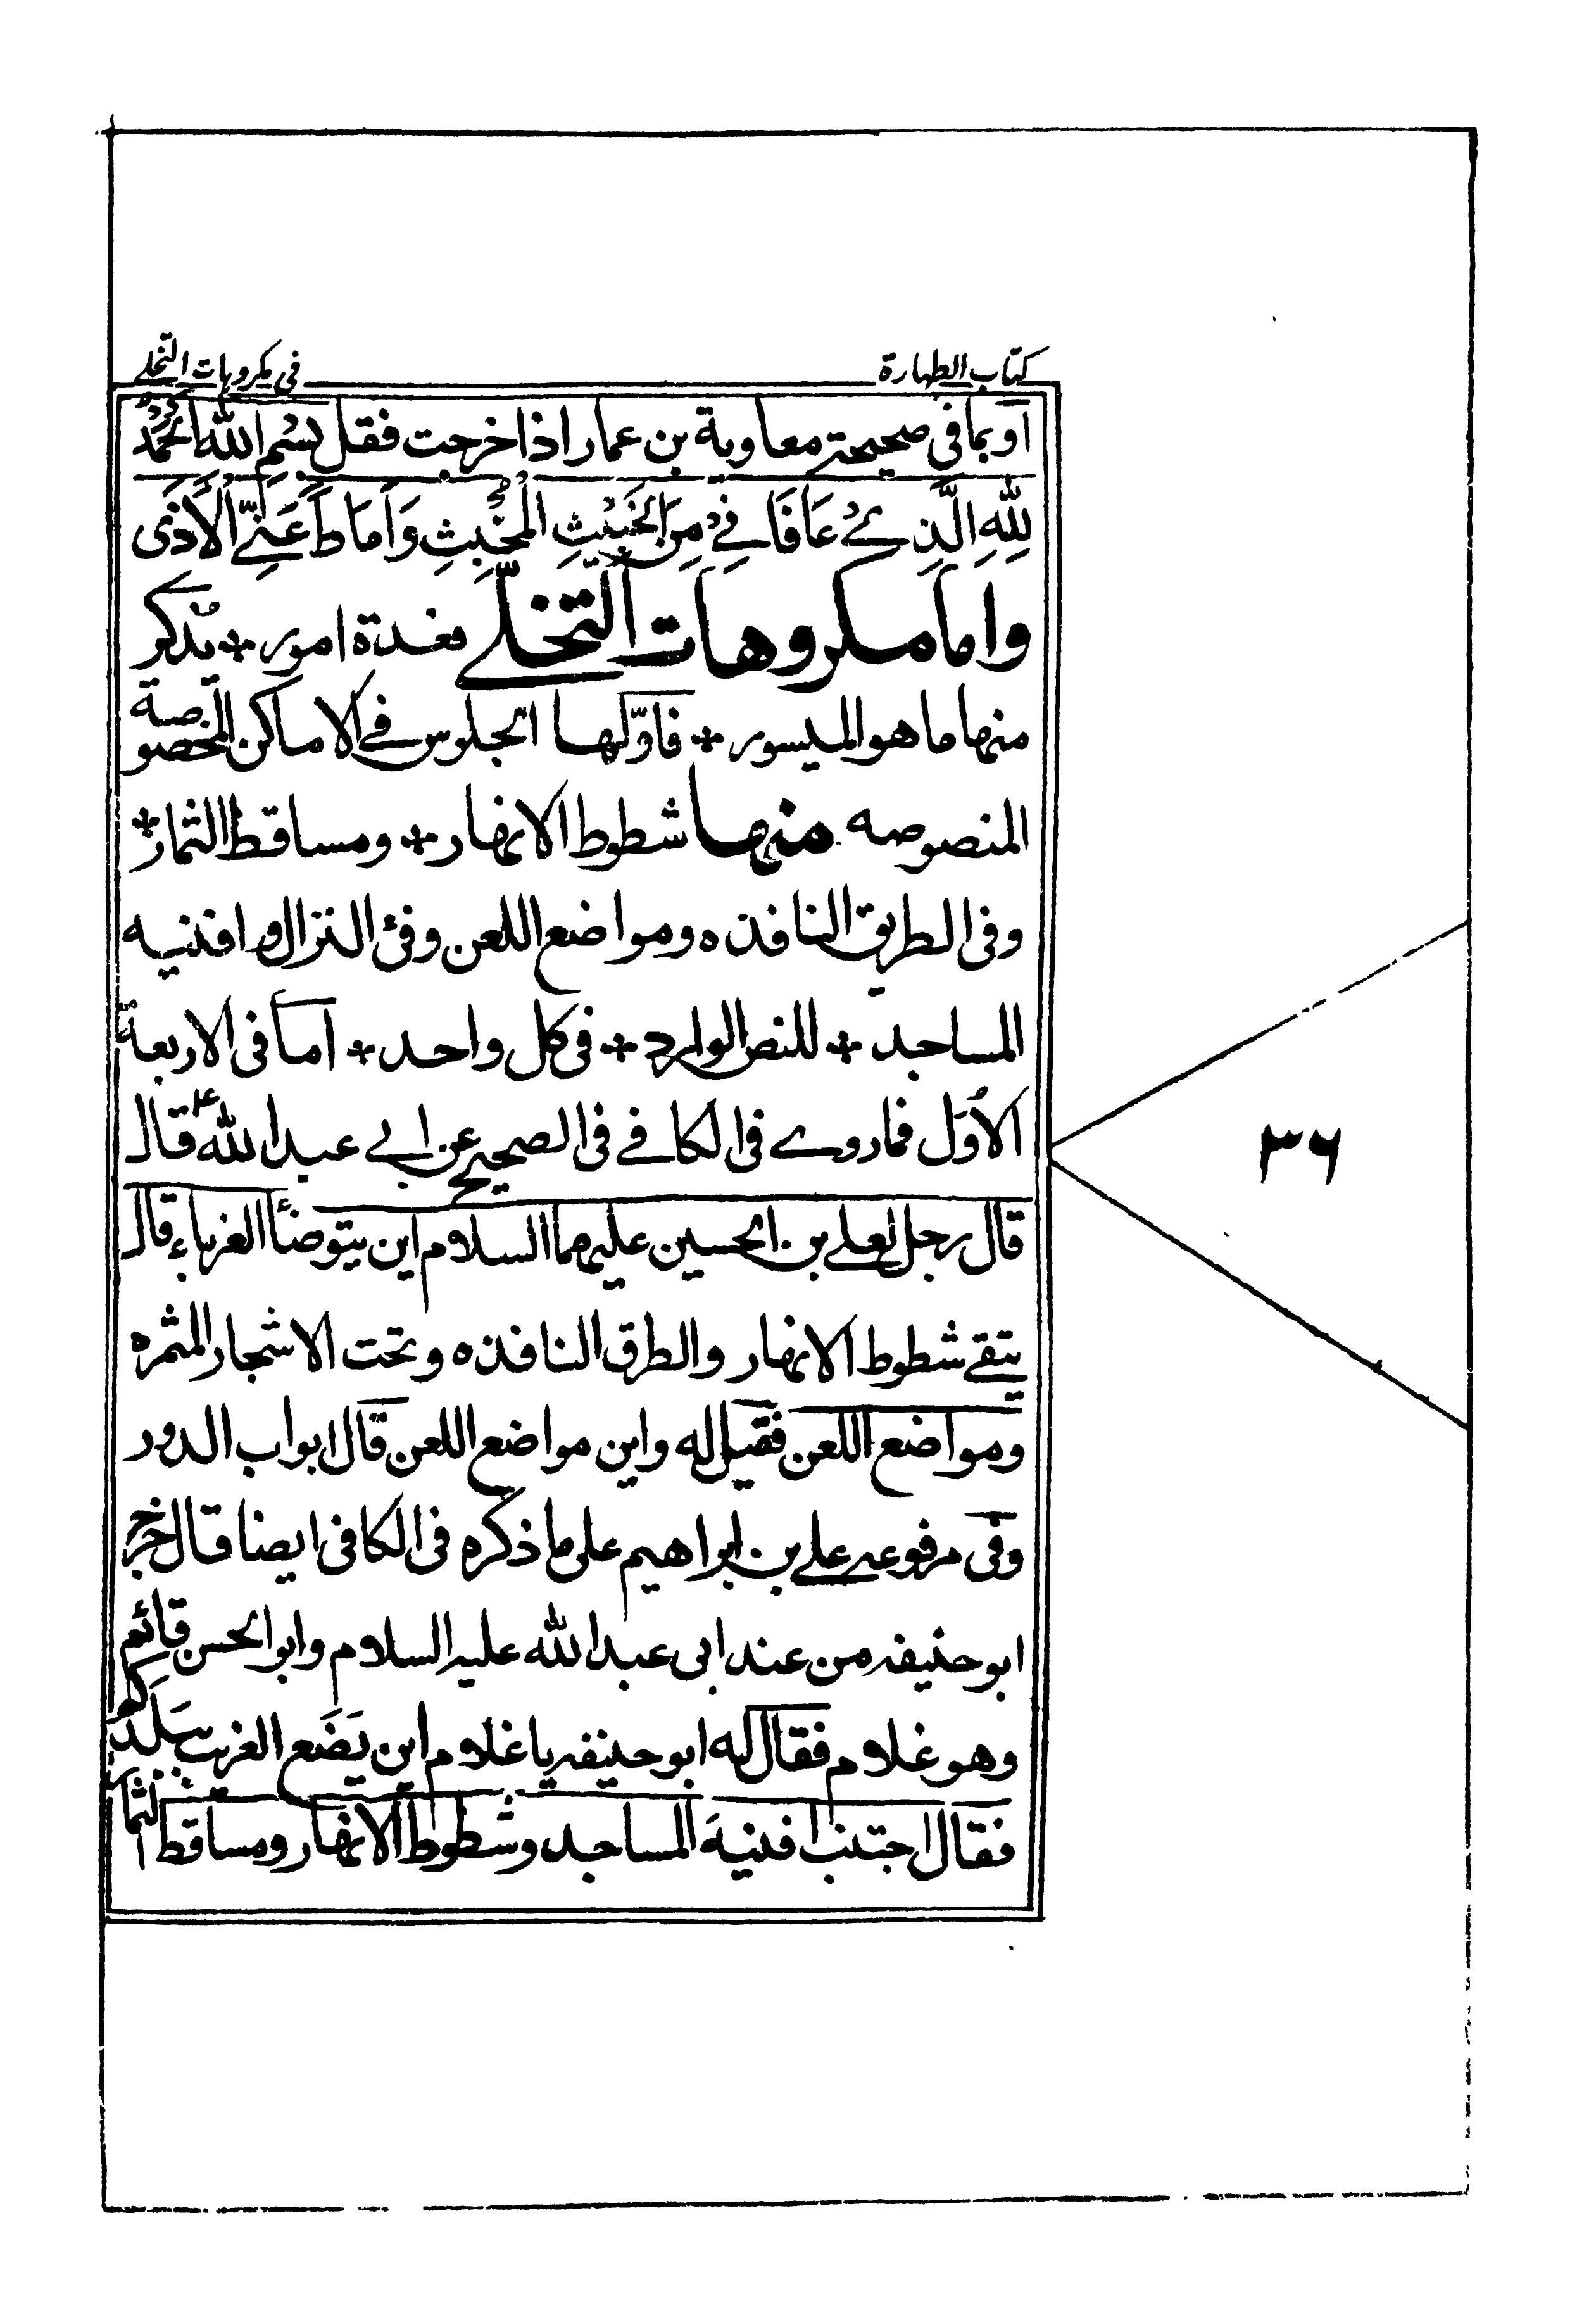 كتاب الطهارة
في مكروهات التخلي
او بما في صحيحة معاوية بن عمار اذا خرجت فقل بِسْمِ اللهِ الحَمْدُ
لِلّهِ الَّذِي عَافَانِي مِنَ الخَبِيْثِ المُخْبِثِ وَاَمَاطَ عَنِّي الاَذَى
واما مكروهات التخلّي فعدة امور * يُذكر
منها ما هو الميسور * فاوّلها الجلوس في الاماكن المخصوصة
المنصوصه منها شطوط الانهار * ومساقط الثمار *
وفي الطريق النافذه ومواضع اللعن وفئ النزال وافنيه
المساجد * للنص الوارد * في كل واحد * اما في الاربعة
الاُوَل فما روي في الكافي في الصحيح عن ابي عبد اللهؑ قال
قال رجل لعلي بن الحسين عليهما السلام اين يتوضأ الغرباء قال
يتقي شطوط الانهار والطرق النافذه وتحت الاشجار المثمره
ومواضع اللعن فقيل له واين مواضع اللعن قال ابواب الدور
وفي مرفوعة علي بن ابراهيم على ما ذكره في الكافي ايضا قال خرج
ابو حنيفه من عند ابي عبد الله عليه السلام وابو الحسن قائم
وهو غلام فقال له ابو حنيفه يا غلام اين يَضَع الغريب ببلدكم
فقال اجتنب افنيةَ المساجد وشطوط الانهار ومساقط الثمار
٣٦